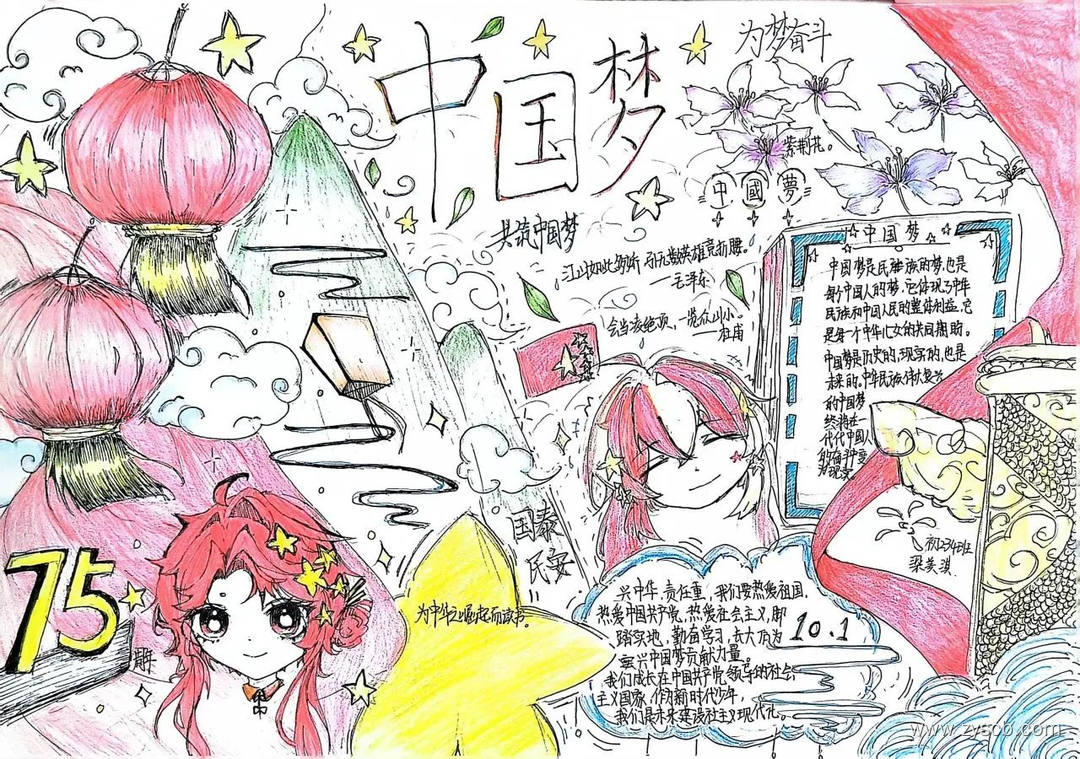 中国梦
为梦奋斗
紫荆花。
中國夢
共筑中国梦
江山如此多娇 引无数英雄竞折腰。
——毛泽东
会当凌绝顶，一览众山小。
——杜甫
中国梦
中国梦是民族的梦,也是
每个中国人的梦。它体现了中华
民族和中国人民的整体利益,它
是每个中华儿女的共同期盼。
中国梦是历史的,现实的,也是
未来的。中华民族伟大复兴
的中国梦
终将在一
代代中国人
国泰
民安
75
为中华之崛起而读书。
兴中华,责任重,我们要热爱祖国,
热爱中国共产党,热爱社会主义,脚
踏实地,勤奋学习,长大后为
复兴中国梦贡献力量。
我们成长在中国共产党领导的社会
主义国家,作为新时代少年,
我们是未来建设社会主义现代化。
10.1
初2344班
www.zyscb.com